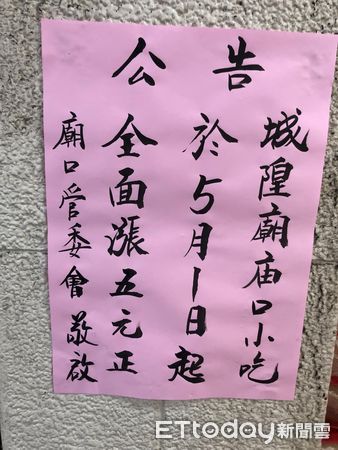 公告
城隍廟庙口小吃
於5月1日起
全面漲五元正
廟口管委會敬啟
ETtoday新聞雲